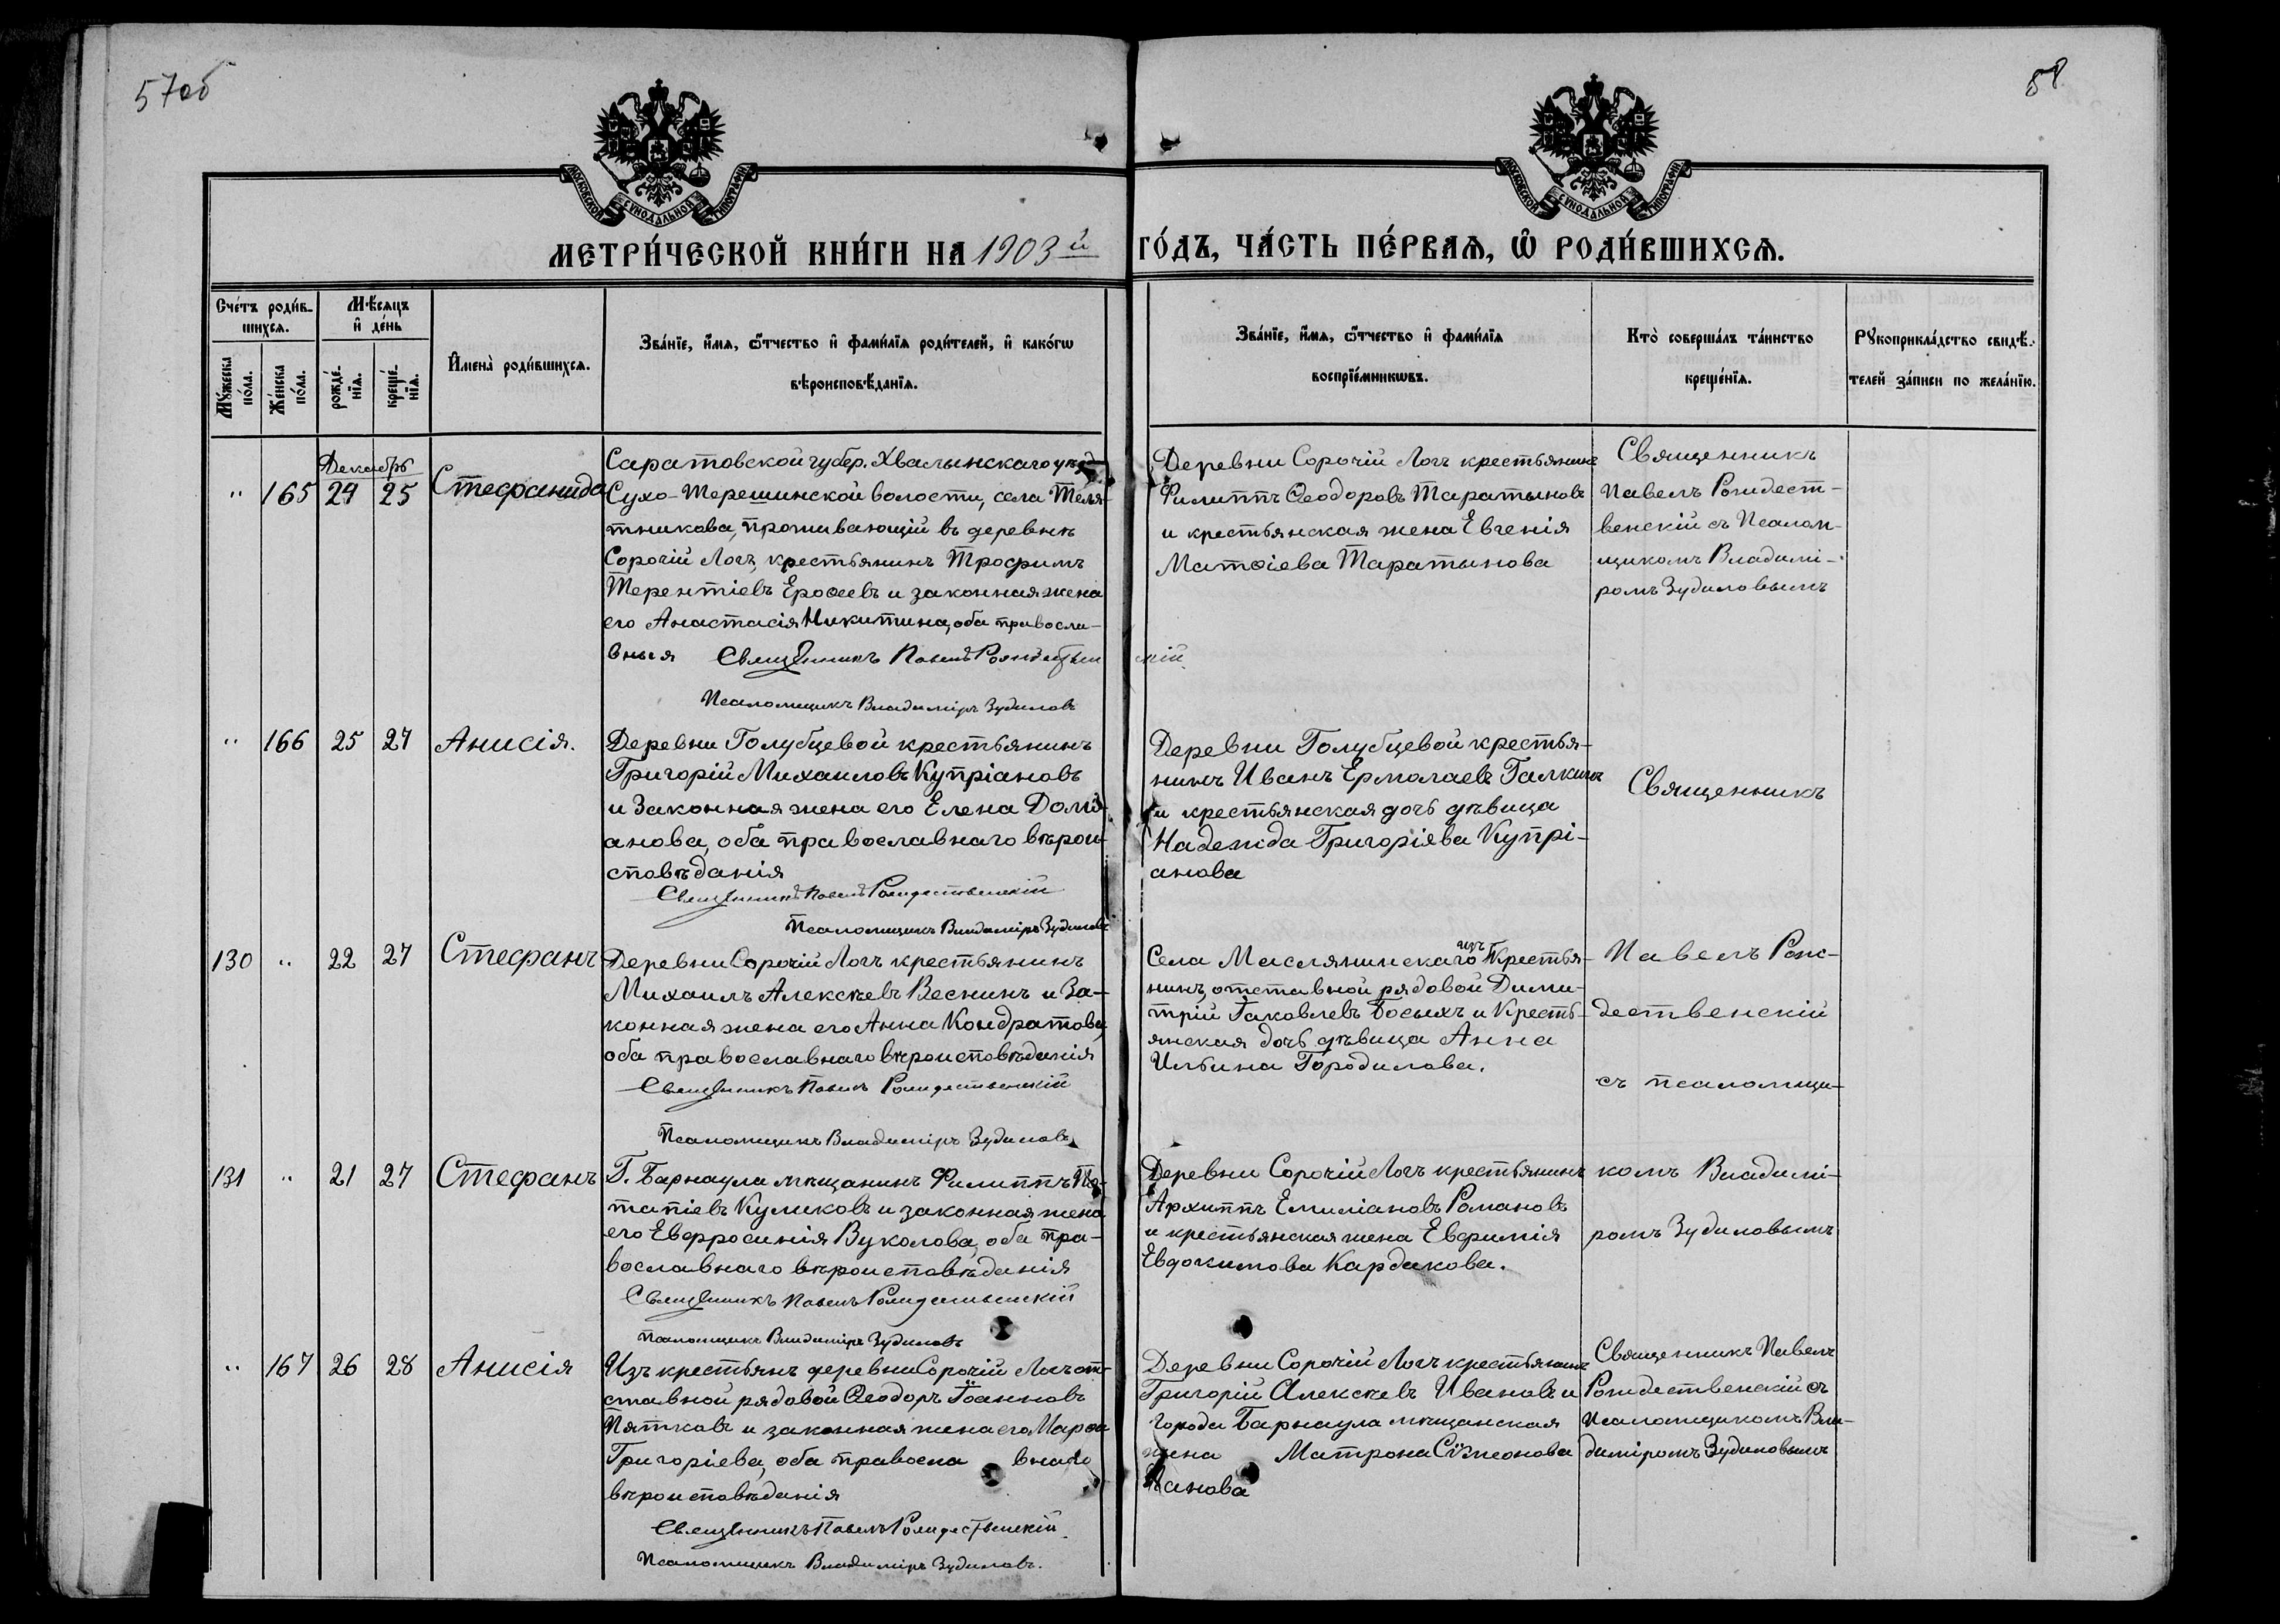 57об
58
МОСКОВСКОЙ СУНОДАЛЬНОЙ ТИПОГРАФІИ
МОСКОВСКОЙ СУНОДАЛЬНОЙ ТИПОГРАФІИ
МЕТРИ́ЧЕСКОЙ КНИ́ГИ НА 1903й ГО́ДЪ, ЧА́СТЬ ПЕ́РВАѦ, Ѿ РОДИ́ВШИХСѦ.
Сче́тъ роди́в-
шихсѧ.
Мꙋ́жеска
по́ла.
Же́нска
по́ла.
Мѣ́сѧцъ
и҆ де́нь
рожде́-
нїѧ.
креще́-
нїѧ.
И҆мена̀ роди́вшихсѧ.
Зва́нїе, и҆́мѧ, ѻ҆́тчество и҆ фами́лїѧ роди́телей, и҆ како́гѡ
вѣроисповѣ́данїѧ.
Зва́нїе, и҆́мѧ, ѻ҆́тчество и҆ фами́лїѧ
воспрїе́мникѡвъ.
Кто̀ соверша́лъ та́инство
креще́нїѧ.
Рꙋкоприкла́дство свидѣ́-
телей за́писи по жела́нїю.
Декабрь
" 165 24 25 Стефанида
Саратовской губер. Хвалынскаго уѣзд
Сухо-Терешинской волости, села Теля-
тникова, проживающій въ деревнѣ
Сорочій Логъ, крестьянинъ Трофимъ
Терентіевъ Ероѳеевъ и законная жена
его Анастасія Никитина, оба правосла-
вныя Священникъ Павелъ Рождественскій
Псаломщикъ Владиміръ Зудиловъ
Деревни Сорочій Логъ крестьянинъ
Филиппъ Ѳеодоровъ Таратыновъ
и крестьянская жена Евгенія
Матѳіева Таратынова
Священникъ
Павелъ Рождест-
венскій съ Псалом-
щикомъ Владимі-
ромъ Зудиловымъ
" 166 25 27 Анисія.
Деревни Голубцевой крестьянинъ
Григорій Михаиловъ Купріановъ
и Законная жена его Елена Домі-
анова, оба православнаго вѣрои-
сповѣданія
Священникъ Павелъ Рождественскій
Псаломщикъ Владиміръ Зудиловъ
Деревни Голубцевой крестья-
нинъ Иванъ Ермолаевъ Галкинъ
и крестьянская дочь дѣвица
Надежда Григоріева Купрі-
анова
Священникъ
130 " 22 27 Стефанъ
Деревни Сорочій Логъ крестьянинъ
Михаилъ Алексѣевъ Веснинъ и За-
конная жена его Анна Кондратова,
оба православнаго вѣроисповѣданія
Священникъ Павелъ Рождественскій
Псаломщикъ Владиміръ Зудиловъ
Села Маслянинскаго изъ Крестья-
нинъ, отставной рядовой Дими-
трій Іаковлевъ Босыхъ и Кресть-
янская дочь дѣвица Анна
Ильина Городилова.
Павелъ Рож-
дественскій
съ псаломщи-
131 " 21 27 Стефанъ
Г. Барнаула мѣщанинъ Филиппъ
татіевъ Куликовъ и законная жена
его Евфросинія Вуколова, оба пра-
вославнаго вѣроисповѣданія
Священникъ Павелъ Рождественскій
Псаломщикъ Владиміръ Зудиловъ
Деревни Сорочій Логъ крестьянинъ
Архиппъ Емиліановъ Романовъ
и крестьянская жена Евфимія
Евдокимова Кардакова.
комъ Владимі-
ромъ Зудиловымъ
" 167 26 28 Анисія
Изъ крестьянъ деревни Сорочій Логъ от-
ставной рядовой Ѳеодоръ Іоанновъ
Пятковъ и законная жена его Марѳа
Григоріева, оба православнаго
вѣроисповѣданія
Священникъ Павелъ Рождественскій
Псаломщикъ Владиміръ Зудиловъ.
Деревни Сорочій Логъ крестьянинъ
Григорій Алексѣевъ Ивановъ и
города Барнаула мѣщанская
жена Матрона Сѵмеонова
Панова
Священникъ Павелъ
Рождественскій съ
Псаломщикомъ Вла-
диміромъ Зудиловымъ